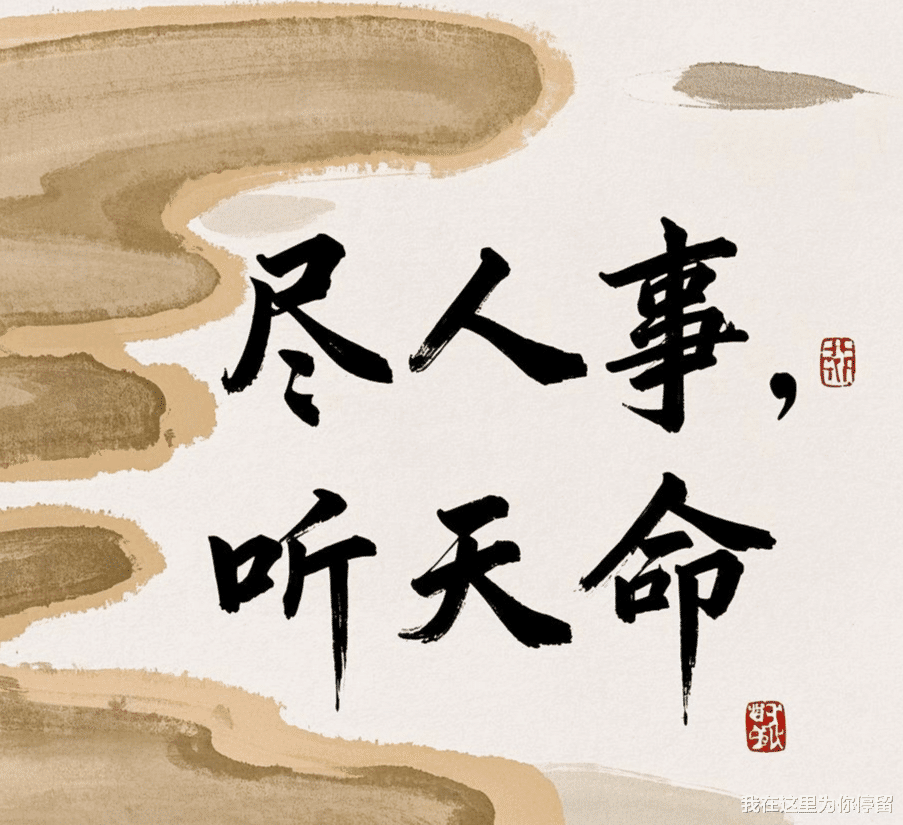 尽人事,
听天命
我在这里为你停留